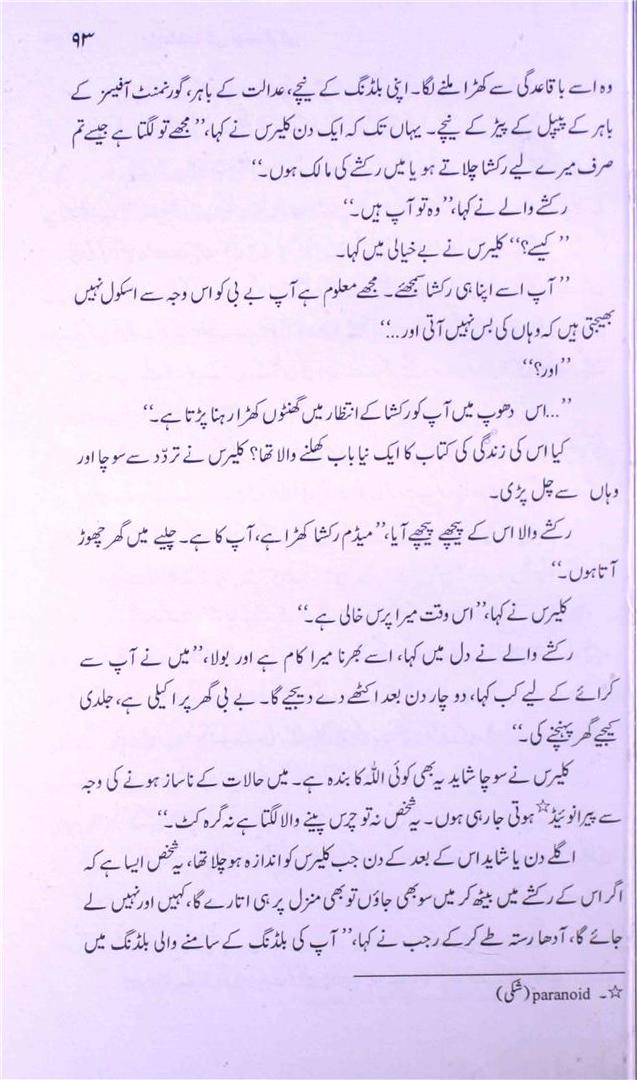 ۹۳
وہ اسے باقاعدگی سے کھڑا ملنے لگا۔ اپنی بلڈنگ کے نیچے، عدالت کے باہر، گورنمنٹ آفیسز کے
باہر کے پیپل کے پیڑ کے نیچے۔ یہاں تک کہ ایک دن کلیرس نے کہا، ”مجھے تو لگتا ہے جیسے تم
صرف میرے لیے رکشا چلاتے ہو یا میں رکشے کی مالک ہوں۔“
رکشے والے نے کہا، ”وہ تو آپ ہیں۔“
”کیسے؟“ کلیرس نے بے خیالی میں کہا۔
”آپ اسے اپنا ہی رکشا سمجھئے۔ مجھے معلوم ہے آپ بے بی کو اس وجہ سے اسکول نہیں
بھیجتی ہیں کہ وہاں کی بس نہیں آتی اور...“
”اور؟“
”...اس دھوپ میں آپ کو رکشا کے انتظار میں گھنٹوں کھڑا رہنا پڑتا ہے۔“
کیا اس کی زندگی کی کتاب کا ایک نیا باب کھلنے والا تھا؟ کلیرس نے تردّد سے سوچا اور
وہاں سے چل پڑی۔
رکشے والا اس کے پیچھے پیچھے آیا، ”میڈم رکشا کھڑا ہے، آپ کا ہے۔ چلیے میں گھر چھوڑ
آتا ہوں۔“
کلیرس نے کہا، ”اس وقت میرا پرس خالی ہے۔“
رکشے والے نے دل میں کہا، اسے بھرنا میرا کام ہے اور بولا، ”میں نے آپ سے
کرائے کے لیے کب کہا، دو چار دن بعد اکٹھے دے دیجیے گا۔ بے بی گھر پر اکیلی ہے، جلدی
کیجیے گھر پہنچنے کی۔“
کلیرس نے سوچا شاید یہ بھی کوئی اللہ کا بندہ ہے۔ میں حالات کے ناساز ہونے کی وجہ
سے پیرانوئیڈ☆ ہوتی جا رہی ہوں۔ یہ شخص نہ تو چرس پینے والا لگتا ہے نہ گرہ کٹ۔“
اگلے دن یا شاید اس کے بعد کے دن جب کلیرس کو اندازہ ہو چلا تھا، یہ شخص ایسا ہے کہ
اگر اس کے رکشے میں بیٹھ کر میں سو بھی جاؤں تو بھی منزل پر ہی اتارے گا، کہیں اور نہیں لے
جائے گا، آدھا رستہ طے کرکے رجب نے کہا، ”آپ کی بلڈنگ کے سامنے والی بلڈنگ میں
☆۔ paranoid (شکی)